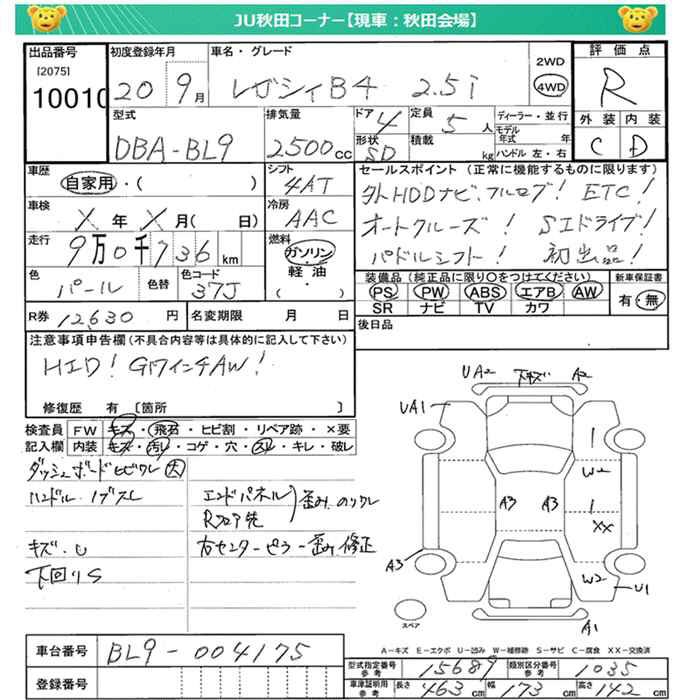 JU秋田コーナー【現車：秋田会場】
出品番号 初度登録年月 車名・グレード 2WD 評価点
[2075] 10010 20 9月 レガシィB4 2.5i 4WD R
型式 排気量 ドア 4 定員 5人 ディーラー・並行 外装 内装
DBA-BL9 2500cc 形状 SD 積載 kg モデル年式 年 ハンドル 左・右 C D
車歴 シフト セールスポイント (正常に機能するものに限ります)
自家用・( ) 4AT 外HDDナビ、フルセグ! ETC!
車検 冷房 オートクルーズ! SIドライブ!
X年X月( 日) AAC パドルシフト! 初出品!
走行 燃料
9万0千736km ガソリン
軽油
( )
色 色替 色コード 装備品 (純正品に限り〇をつけてください) 新車保証書
パール 37J PS PW ABS エアB AW 有・無
SR ナビ TV カワ
R券 12,630円 名変期限 月 日 後日品
注意事項申告欄(不具合内容等は具体的に記入して下さい)
HID! G17インチAW!
修復歴 有 〔箇所 〕
検査員 FW キズ・飛石・ヒビ割・リペア跡・×要
記入欄 内装 キズ・汚レ・コゲ・穴・スレ・キレ・破レ
ダッシュボードヒビワレ 大
ハンドル・ノブスレ エンドパネル 歪み、のりクレ
Rフロア先
キズ・U 右センターピラー歪み修正
下回りS
UA2 下キズ A2
UA1
1
W2
A3 A3 1
XX
A3 W2
U1
スペア A1
A-キズ E-エクボ U-凹み W-補修跡 S-サビ C-腐食 XX-交換済
車台番号 BL9-004175
型式指定番号 参考 15689 類別区分番号 参考 1035
登録番号 車庫証明用 参考 長さ 463cm 幅 173cm 高さ 142cm